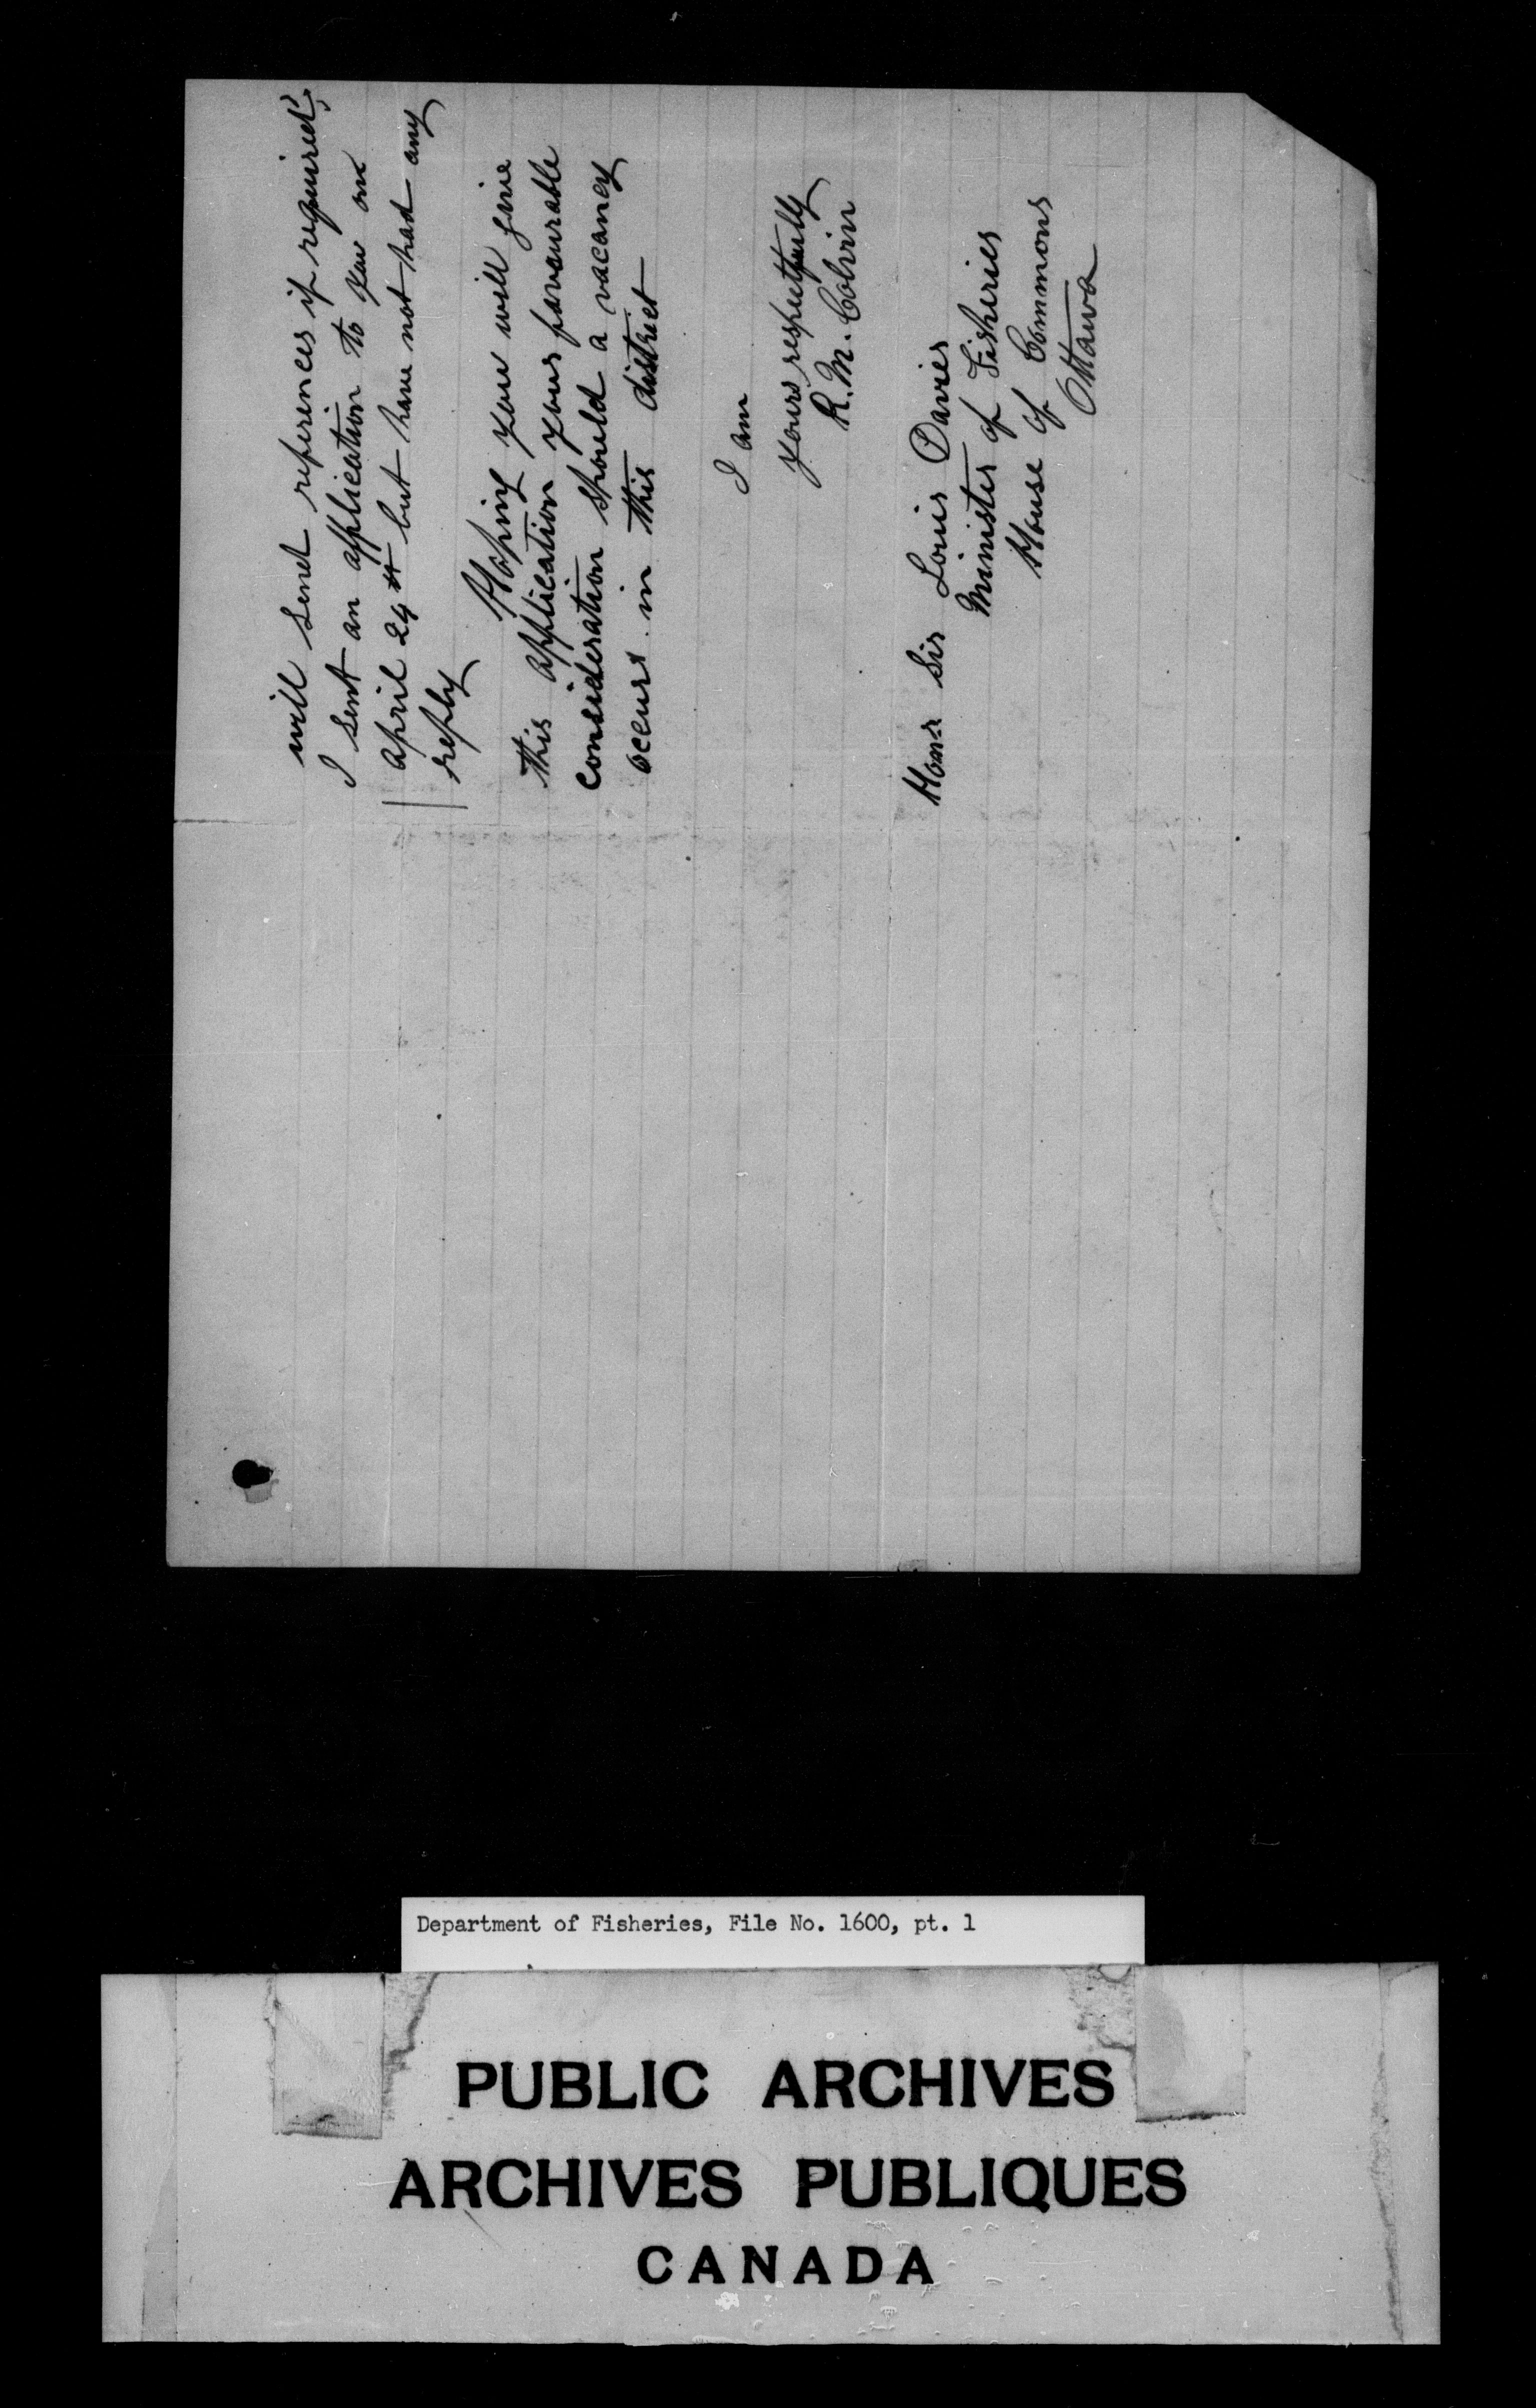 will send references if required,
I sent an application to you on
April 29th but have not had any
reply
Hoping you will give
this application your favourable
consideration should a vacancy
occur in this district
I am
yours respectfully
R. M. Colvin
Sir Louis Davies
Minister of Fisheries
House of Commons
Ottawa
Department of Fisheries, File No. 1600, pt. 1
PUBLIC ARCHIVES
ARCHIVES PUBLIQUES
CANADA